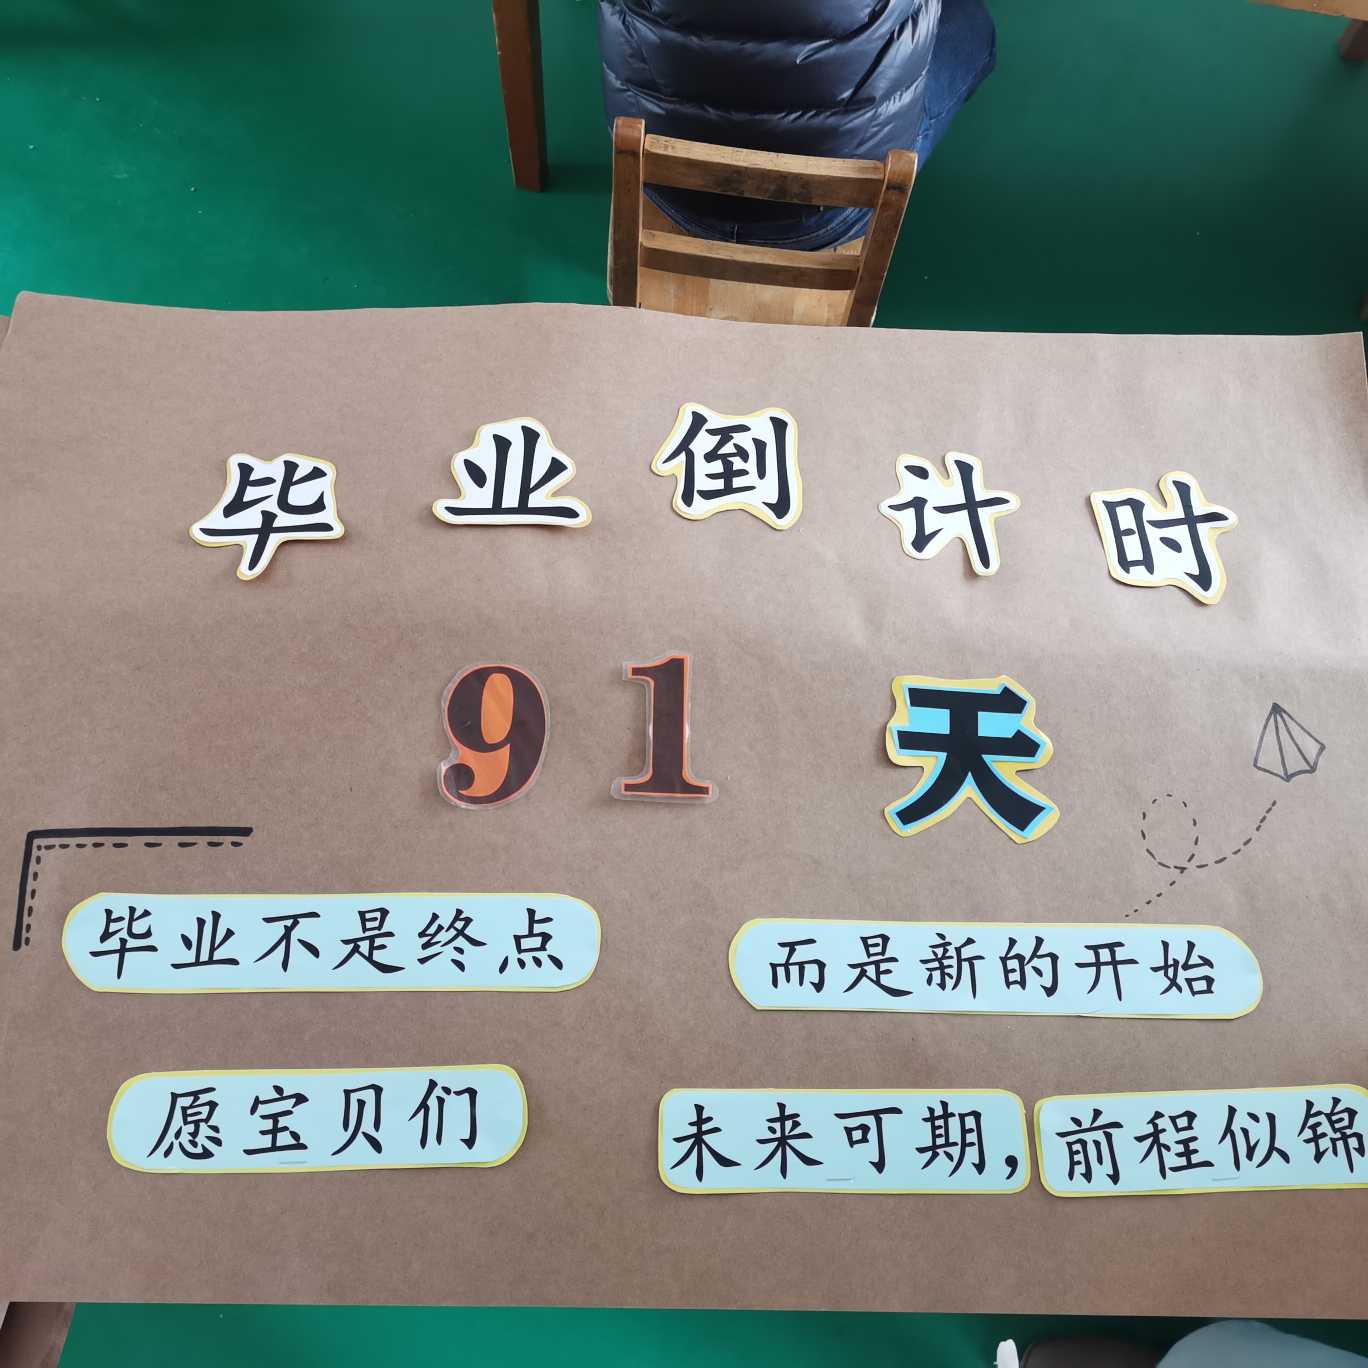 毕业倒计时
91天
毕业不是终点
而是新的开始
愿宝贝们
未来可期，前程似锦